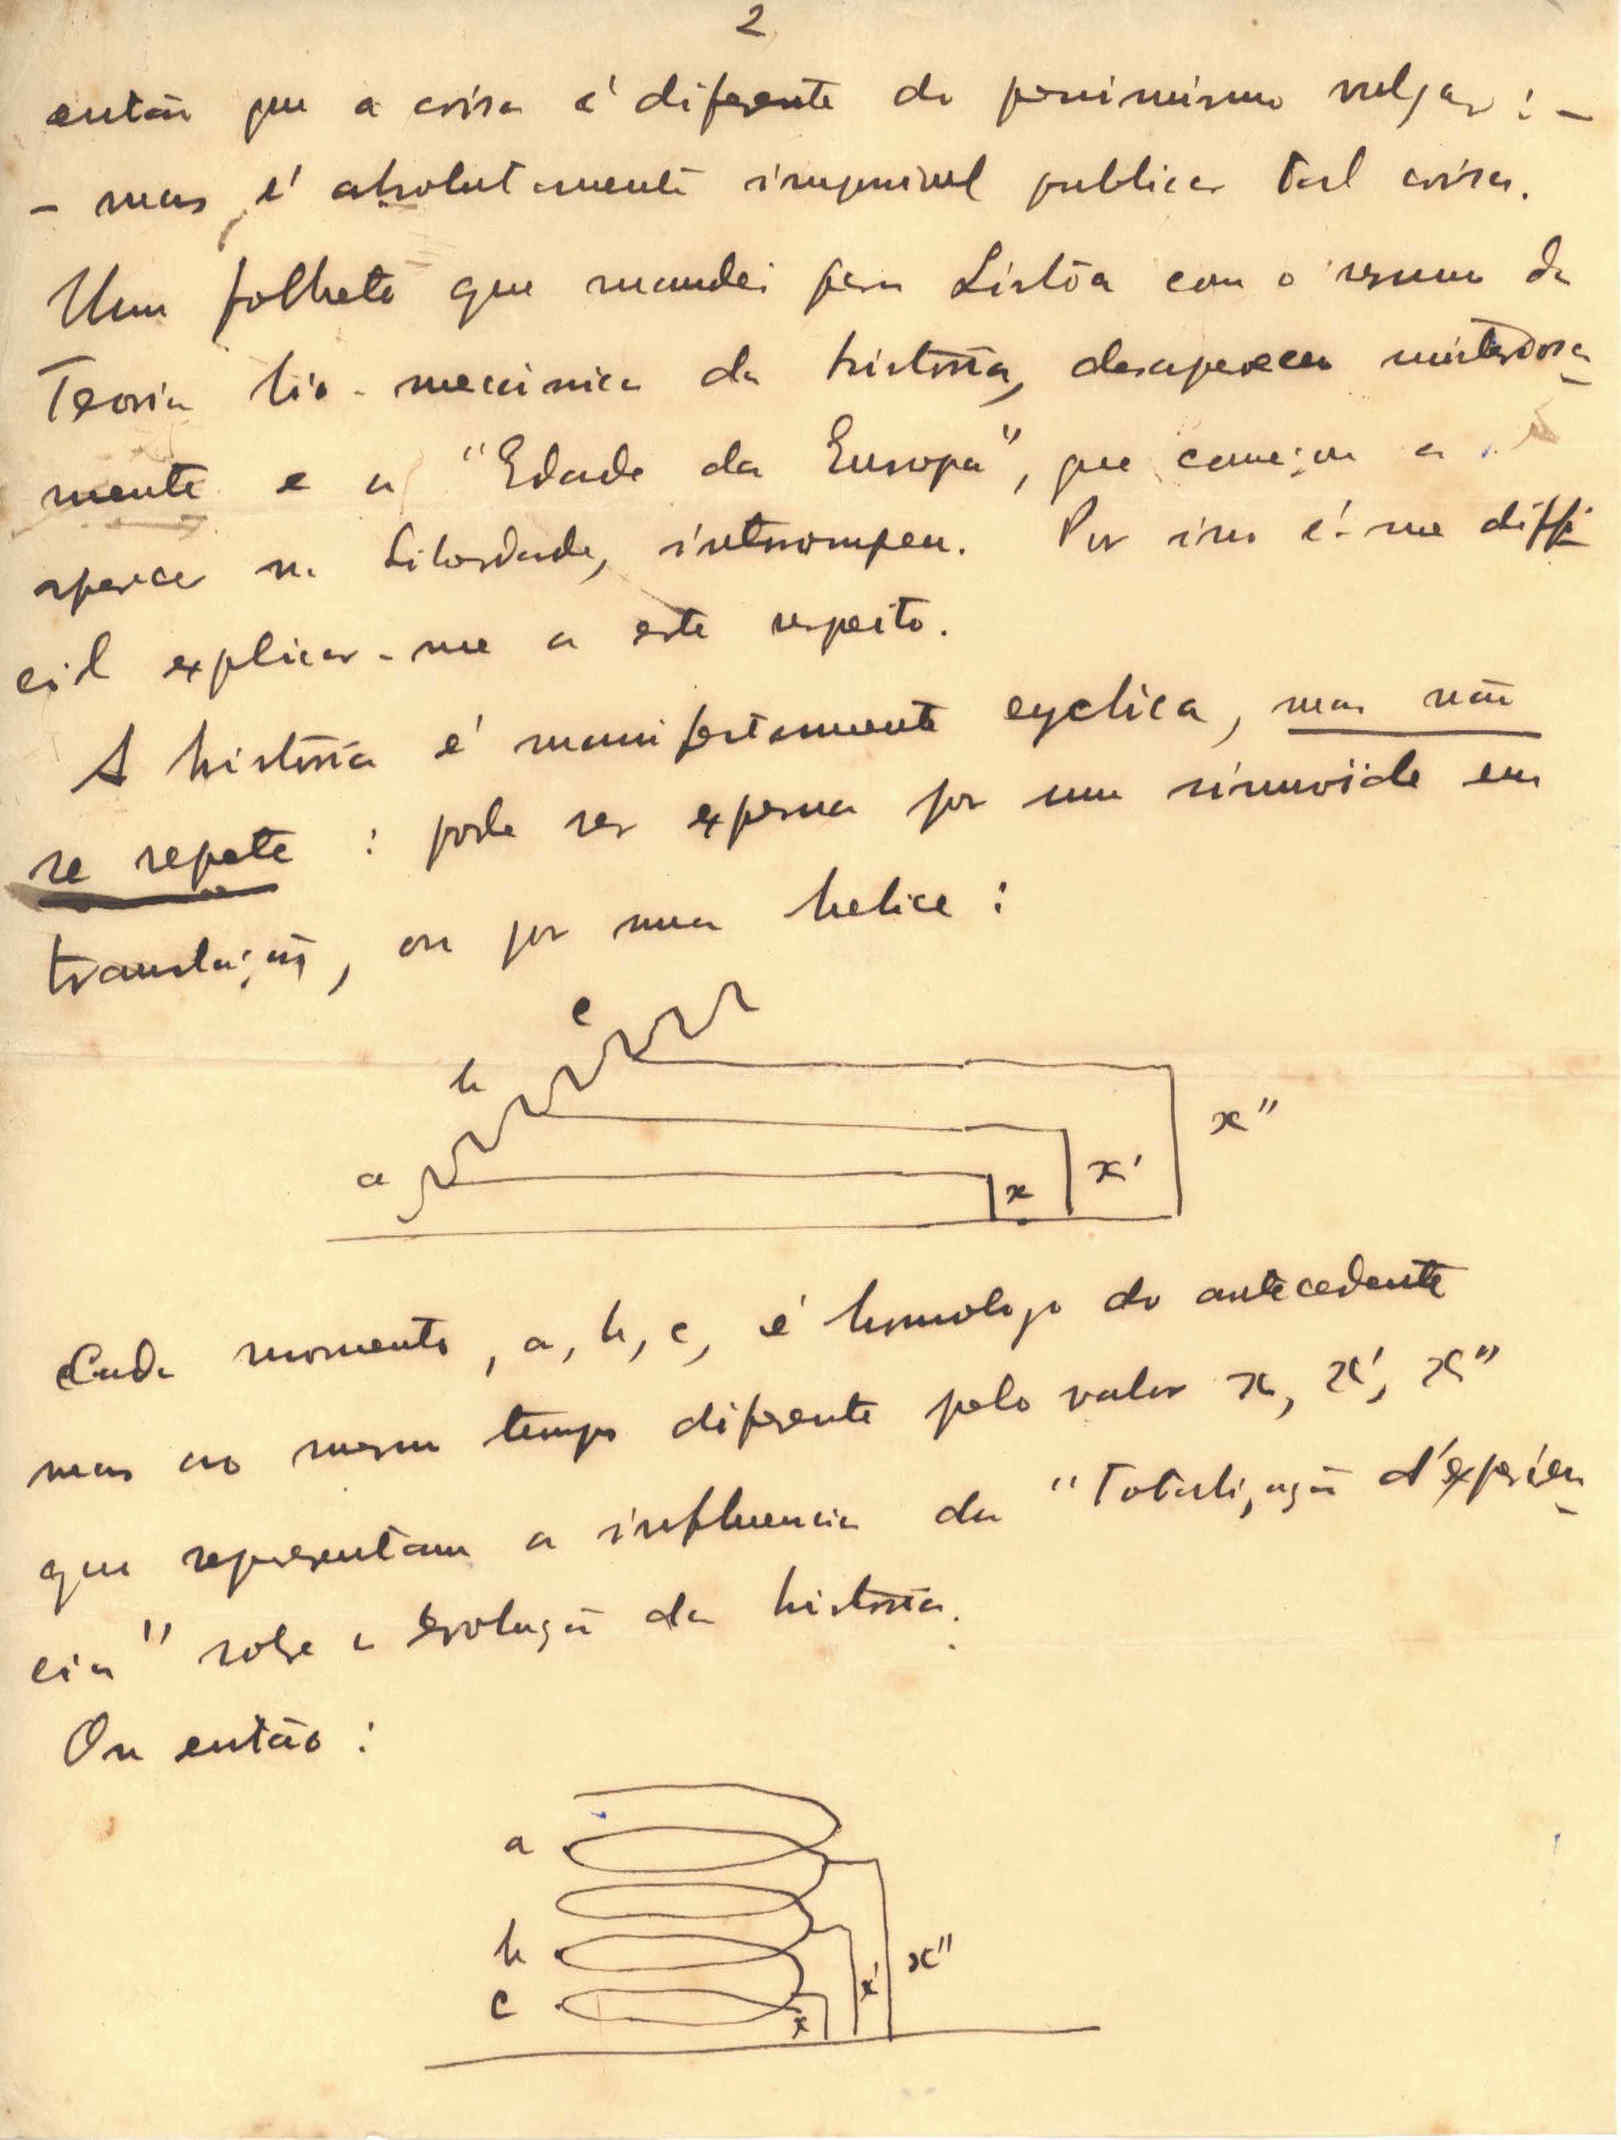 2
então que a coisa é diferente do pessimismo vulgar: -
- mas é absolutamente impossivel publicar tal coisa.
Um folheto que mandei para Lisbôa com o resumo da
Teoria bio-mecanica da história, desapareceu misteriosa-
mente e a "Edade da Europa", que começou a
aparecer na Liberdade, interrompeu. Por isso é-me diffi-
cil explicar-me a este respeito.
A história é manifestamente cyclica, mas não
se repete: pode ser expressa por uma sinusoide em
translação, ou por uma helice:
c
b
a
x
x'
x"
Cada momento, a, b, c, é homologo do antecedente
mas ao mesmo tempo diferente pelo valor x, x', x"
que representam a influencia da "Totalização d'experien-
cia" sobre a evolução da história.
Ou então:
a
b
c
x
x'
x"